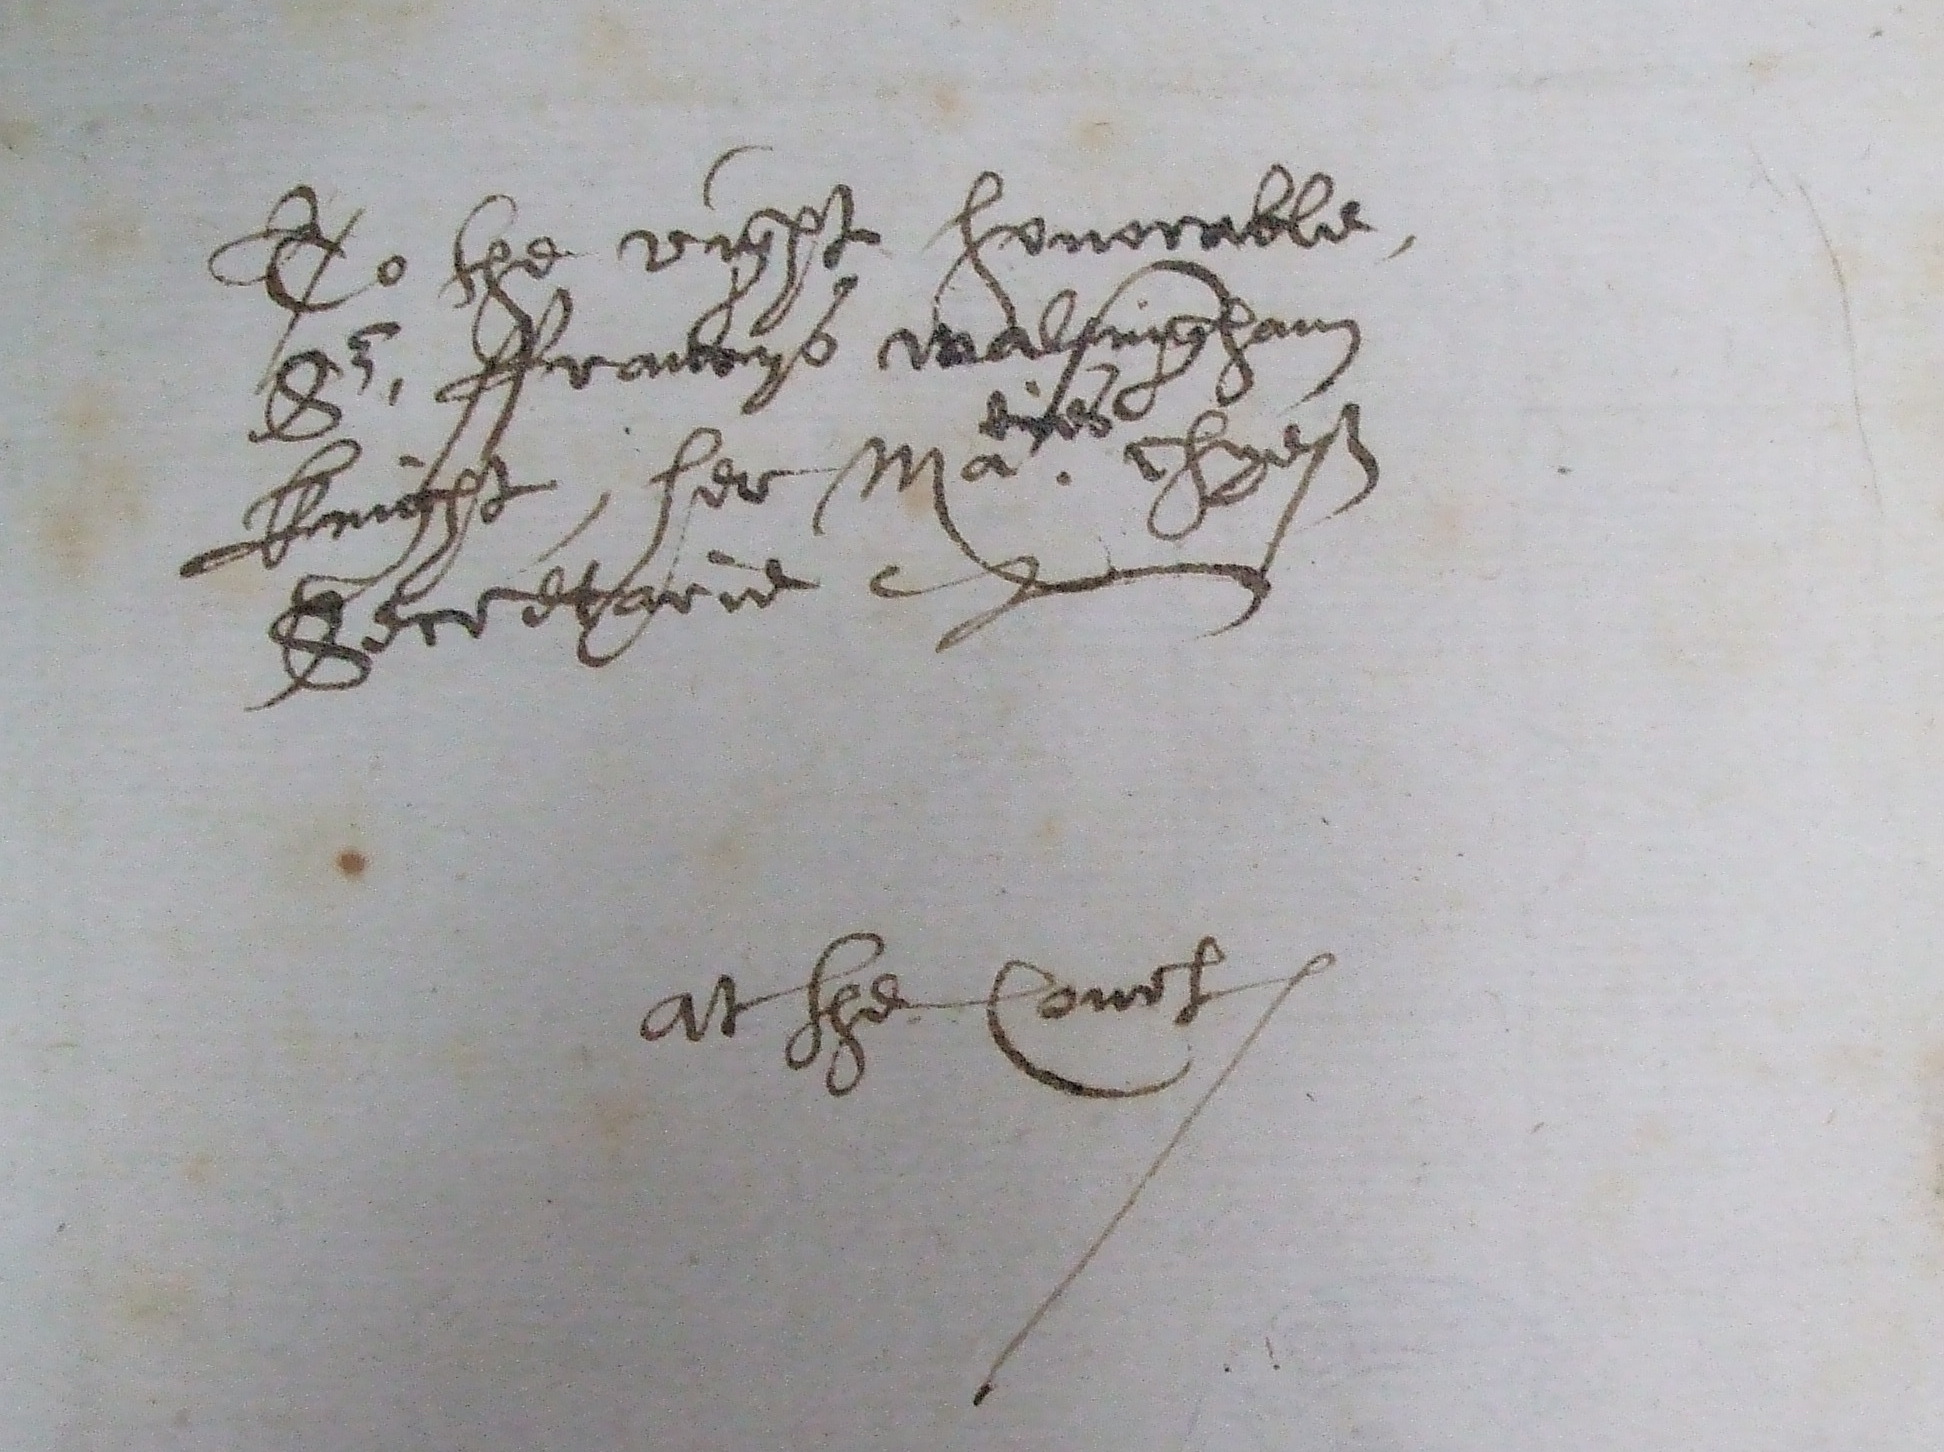 To the right honorable,
Sr, ffrauncys walsingham
knight, her Maties. Cheeff
Secretarie
at the Court